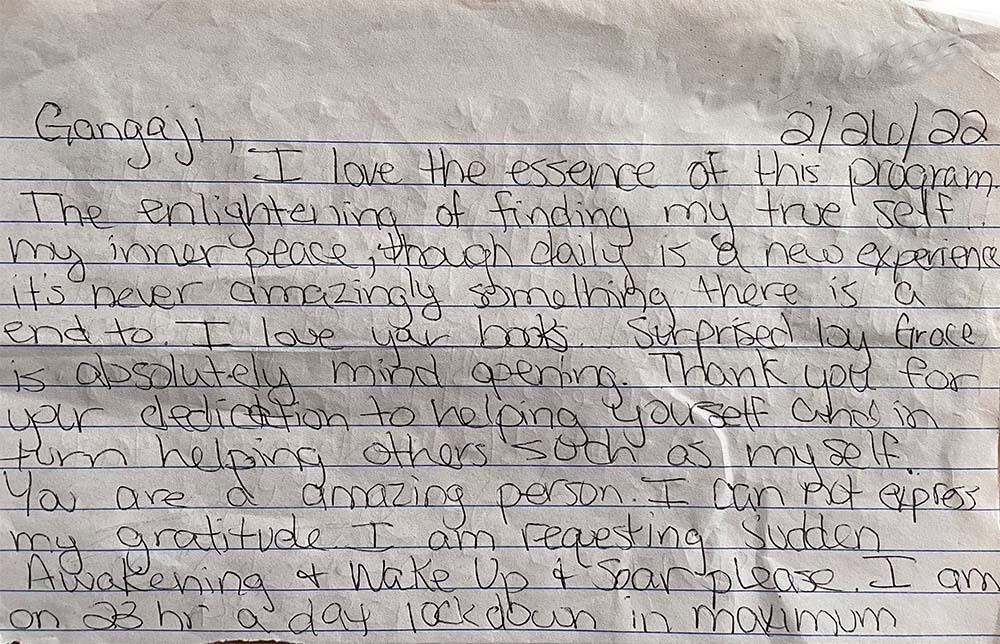 Gangaji, 2/26/22
I love the essence of this program.
The enlightening of finding my true self.
my inner peace, though daily is a new experience
it's never amazingly something there is a
end to. I love your books. Surprised by Grace
is absolutely mind opening. Thank you for
your dedication to helping yourself and in
turn helping others such as myself.
You are a amazing person. I can not express
my gratitude. I am requesting Sudden
Awakening & Wake Up & Soar please. I am
on 23 hr a day lockdown in maximum